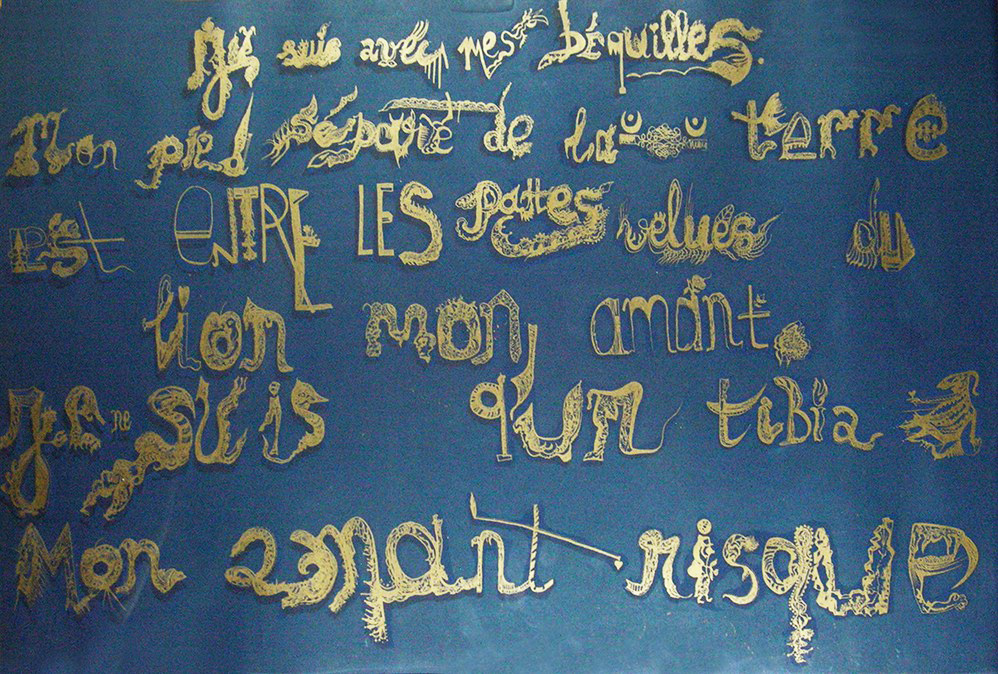 Je suis avec mes béquilles.
Mon pied séparé de la terre
est ENTRE LES pattes velues du
lion mon amant.
Je ne suis qu'un tibia
Mon amant risque